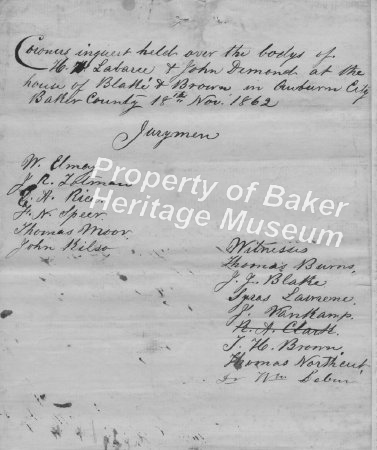 Coroners inquest held over the bodys of
H. Labarie & John Dimond at the
house of Blake & Brown in Auburn City
Baker County 18th Nov. 1862
Jurymen
W. Elmay
J. R. Totman
A. Rice
F. N. Speer
Thomas Moor
John Kilso
Property of Baker
Heritage Museum
Witnesses
Thomas Burns,
J. J. Blake
Lawrene
J. Vankamp.
Clark
T. H. Brown
Thomas Northcut